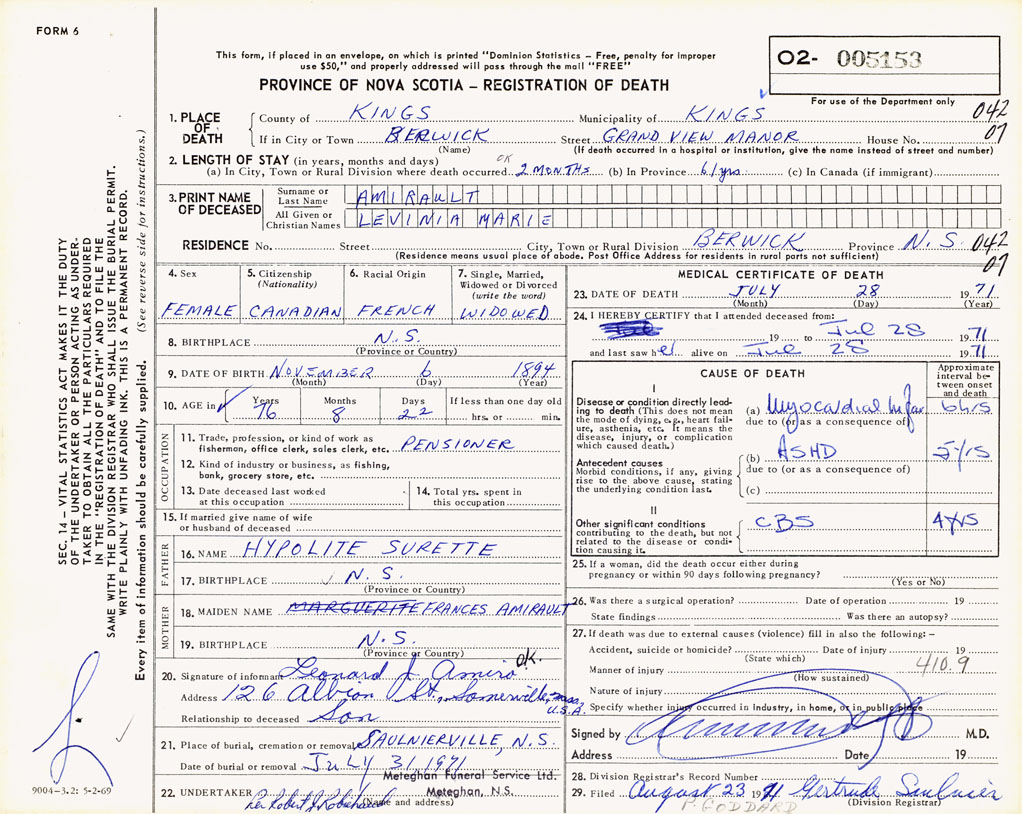 FORM 6
This form, if placed in an envelope, on which is printed "Dominion Statistics – Free, penalty for improper
use $50," and properly addressed will pass through the mail "FREE"
02- 005153
PROVINCE OF NOVA SCOTIA – REGISTRATION OF DEATH
For use of the Department only
1. PLACE OF DEATH
County of KINGS Municipality of KINGS 042
If in City or Town BERWICK Street GRAND VIEW MANOR House No. 07
(Name) (If death occurred in a hospital or institution, give the name instead of street and number)
2. LENGTH OF STAY (in years, months and days) OK
(a) In City, Town or Rural Division where death occurred 2 MONTHS (b) In Province 61 yrs. (c) In Canada (if immigrant)
3. PRINT NAME OF DECEASED
Surname or Last Name AMIRAULT
All Given or Christian Names LEVINIA MARIE
RESIDENCE No. Street City, Town or Rural Division BERWICK Province N.S. 042
(Residence means usual place of abode. Post Office Address for residents in rural parts not sufficient) 07
4. Sex FEMALE
5. Citizenship (Nationality) CANADIAN
6. Racial Origin FRENCH
7. Single, Married, Widowed or Divorced (write the word) WIDOWED
8. BIRTHPLACE N.S.
(Province or Country)
9. DATE OF BIRTH NOVEMBER 6 1894
(Month) (Day) (Year)
10. AGE in Years Months Days If less than one day old
76 8 22 hrs. or min.
OCCUPATION
11. Trade, profession, or kind of work as
fisherman, office clerk, sales clerk, etc. PENSIONER
12. Kind of industry or business, as fishing,
bank, grocery store, etc.
13. Date deceased last worked
at this occupation
14. Total yrs. spent in
this occupation
15. If married give name of wife
or husband of deceased
FATHER
16. NAME HYPOLITE SURETTE
17. BIRTHPLACE N.S.
(Province or Country)
MOTHER
18. MAIDEN NAME MARGUERITE FRANCES AMIRAULT
19. BIRTHPLACE N.S.
(Province or Country) OK.
20. Signature of informant Leonard J. Amiro
Address 126 Albion St., Somerville, Mass. U.S.A.
Relationship to deceased Son
21. Place of burial, cremation or removal SAULNIERVILLE, N.S.
Date of burial or removal JULY 31/1971
Meteghan Funeral Service Ltd.
22. UNDERTAKER Meteghan, N.S.
(Name and address)
MEDICAL CERTIFICATE OF DEATH
23. DATE OF DEATH JULY 28 1971
(Month) (Day) (Year)
24. I HEREBY CERTIFY that I attended deceased from:
19 to Jul 28 1971
and last saw her alive on Jul 28 1971
CAUSE OF DEATH
Approximate interval between onset and death
I
Disease or condition directly leading to death (This does not mean
the mode of dying, e.g., heart failure, asthenia, etc. It means the
disease, injury, or complication
which caused death.)
(a) Myocardial Infar 6 hrs
due to (or as a consequence of)
Antecedent causes
Morbid conditions, if any, giving
rise to the above cause, stating
the underlying condition last.
(b) ASHD 5 yrs
due to (or as a consequence of)
(c)
II
Other significant conditions
contributing to the death, but not
related to the disease or condition causing it.
CBS 4 yrs
25. If a woman, did the death occur either during
pregnancy or within 90 days following pregnancy?
(Yes or No)
26. Was there a surgical operation? Date of operation 19
State findings Was there an autopsy?
27. If death was due to external causes (violence) fill in also the following: –
Accident, suicide or homicide? Date of injury 19
(State which) 410.9
Manner of injury
(How sustained)
Nature of injury
Specify whether injury occurred in Industry, in home, or in public place
Signed by M.D.
Address Date 19
28. Division Registrar's Record Number
29. Filed August 23 1971 Gertrude Saulnier
(Division Registrar)
P. GODDARD
SEC. 14 – VITAL STATISTICS ACT MAKES IT THE DUTY
OF THE UNDERTAKER OR PERSON ACTING AS UNDERTAKER TO OBTAIN ALL THE PARTICULARS REQUIRED
IN THE "REGISTRATION OF DEATH" AND TO FILE THE
SAME WITH THE DIVISION REGISTRAR WHO SHALL ISSUE THE BURIAL PERMIT.
WRITE PLAINLY WITH UNFADING INK. THIS IS A PERMANENT RECORD.
Every item of information should be carefully supplied. (See reverse side for instructions.)
9004-3.2: 5-2-69